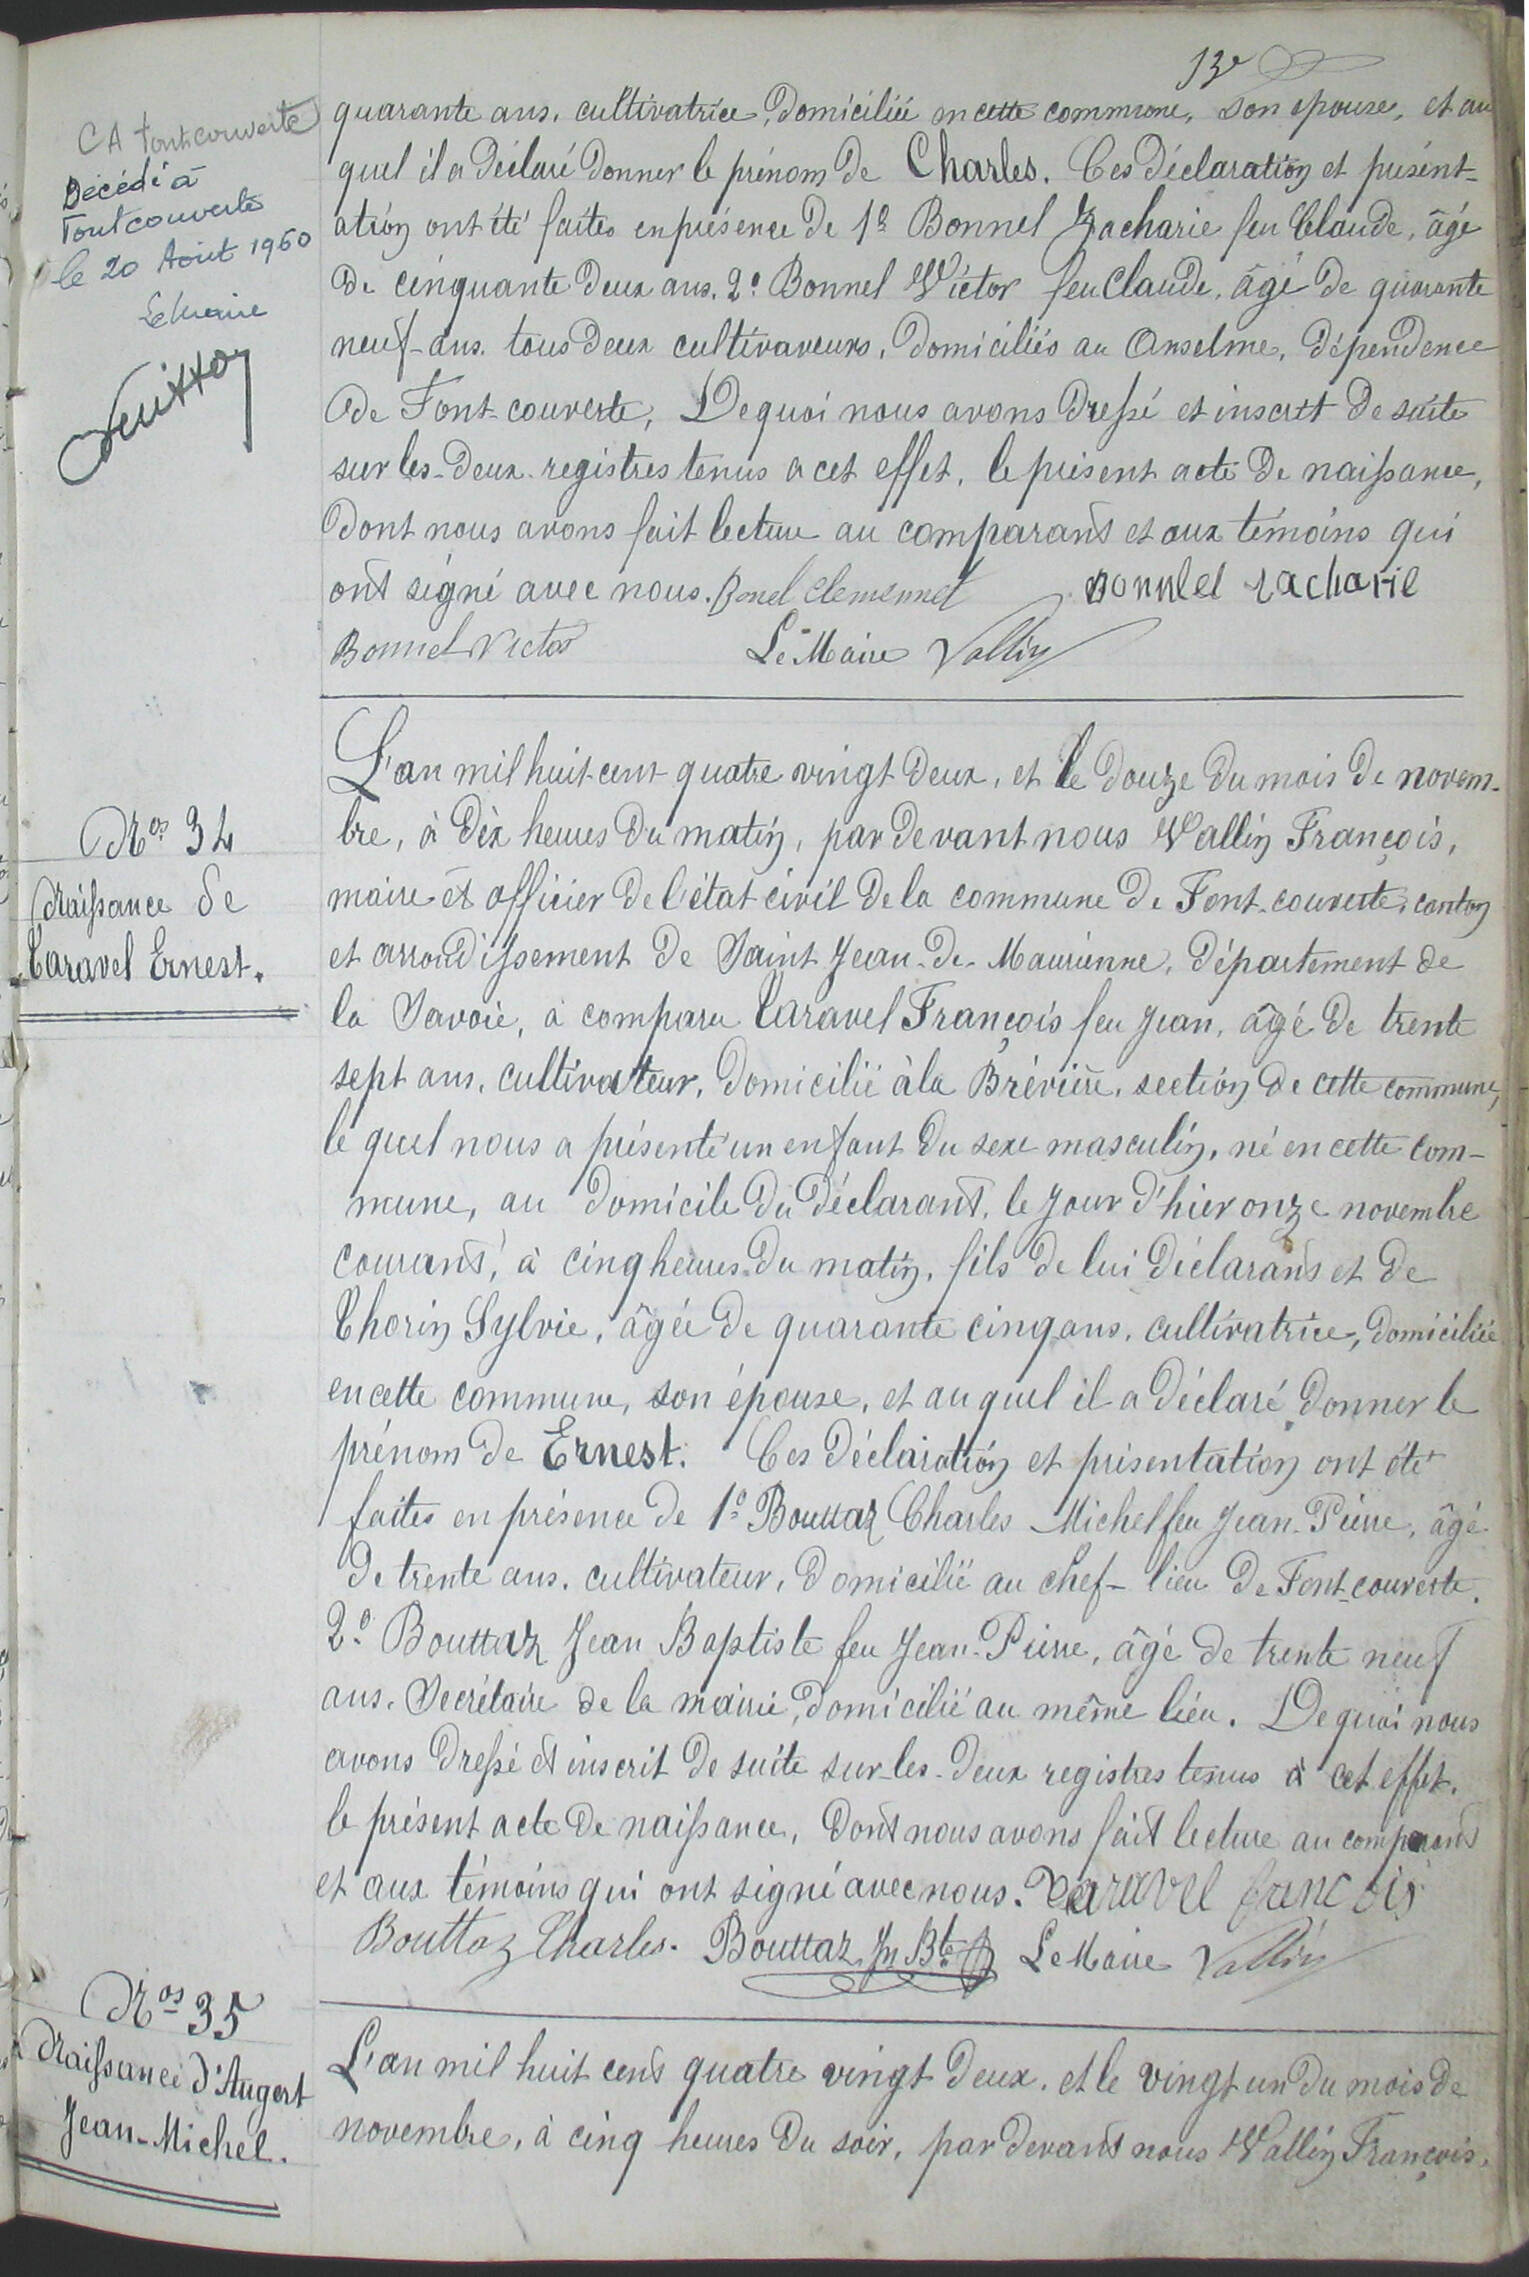 13e
CA Fontcouverte
Décédé à
Fontcouverte
le 20 Août 1960
Le Maire
quarante ans, cultivatrice, domiciliée en cette commune, son épouse, et au
quel il a déclaré donner le prénom de Charles. Ces déclaration et présent-
ation ont été faites en présence de 1º Bonnel Zacharie feu Claude, âgé
de cinquante deux ans, 2º Bonnel Victor feu Claude, âgé de quarante
neuf ans, tous deux cultivaveurs, domiciliés au Anselme, dépendence
de Font-couverte, De quoi nous avons dressé et inscrit de suite
sur les-deux registres tenus à cet effet, le présent acte de naissance,
dont nous avons fait lecture au comparant et aux témoins qui
ont signé avec nous. Bonel Clemennet Bonnlel zacharie
Bonnel Victor Le Maire Vallin
Nos 34
Naissance de
Caravel Ernest.
L'an mil huit cent quatre vingt deux, et le douze du mois de novem-
bre, à dix heures du matin, par devant nous Vallin François,
maire et officier de l'état civil de la commune de Font-couverte, canton
et arrondissement de Saint Jean-de-Maurienne, département de
la Savoie, a comparu Caravel François feu Jean, âgé de trente
sept ans, cultivateur, domicilié à la Brévière, section de cette commune,
le quel nous a présenté un enfant du sexe masculin, né en cette com-
mune, au domicile du déclarant, le jour d'hier onze novembre
courant, à cinq heures du matin, fils de lui déclarant et de
Thorin Sylvie, âgée de quarante cinq ans, cultivatrice, domiciliée
en cette commune, son épouse, et au quel il a déclaré donner le
prénom de Ernest. Ces déclaration et présentation ont été
faites en présence de 1º Bouttaz Charles Michel feu Jean-Pierre, âgé
de trente ans, cultivateur, domicilié au chef-lieu de Font-couverte.
2º Bouttaz Jean Baptiste feu Jean-Pierre, âgé de trente neuf
ans, Secrétaire de la mairie, domicilié au même lieu. De quoi nous
avons dressé et inscrit de suite sur-les-deux registres tenus à cet effet,
le présent acte de naissance, dont nous avons fait lecture au comparant
et aux témoins qui ont signé avec nous. Caravel francois
Bouttaz Charles. Bouttaz Jn Bte Le Maire Vallin
Nos 35
Naissance d'Augert
Jean-Michel.
L'an mil huit cent quatre vingt deux, et le vingt un du mois de
novembre, à cinq heures du soir, par devant nous Vallin François,